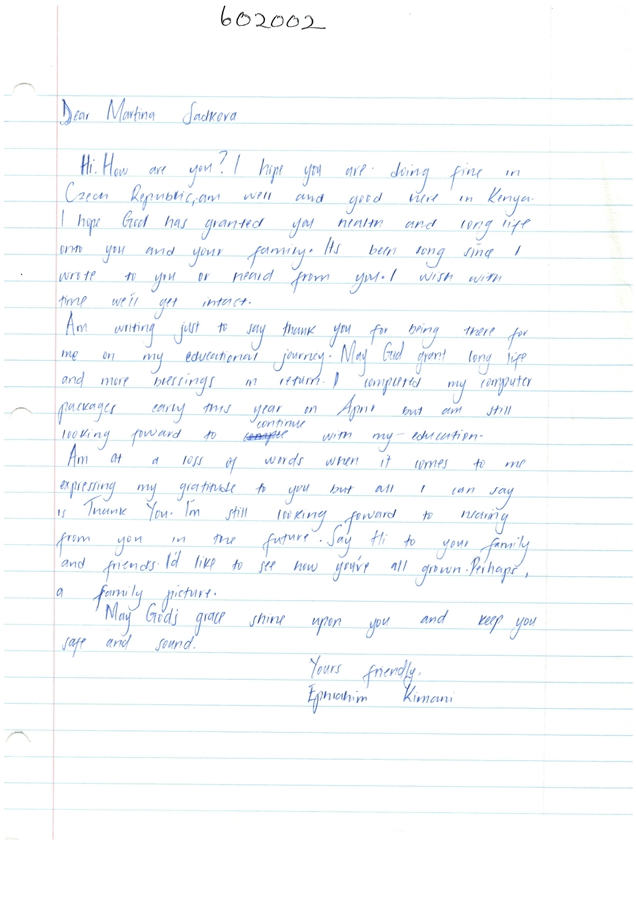 602002
Dear Martina Sadkova
Hi. How are you? I hope you are doing fine in
Czech Republic, am well and good here in Kenya.
I hope God has granted you health and long life
onto you and your family. Its been long since I
wrote to you or heard from you. I wish with
time we'll get intact.
Am writing just to say thank you for being there for
me on my educational journey. May God grant long life
and more blessings in return. I completed my computer
packages early this year on April but am still
looking foward to continue with my education.
Am at a loss of words when it comes to me
expressing my gratitude to you but all I can say
is Thank You. I'm still looking foward to hearing
from you in the future. Say Hi to your family
and friends. I'd like to see how you've all grown. Perhaps,
a family picture.
May God's grace shine upon you and keep you
safe and sound.
Yours friendly.
Ephrahim Kimani